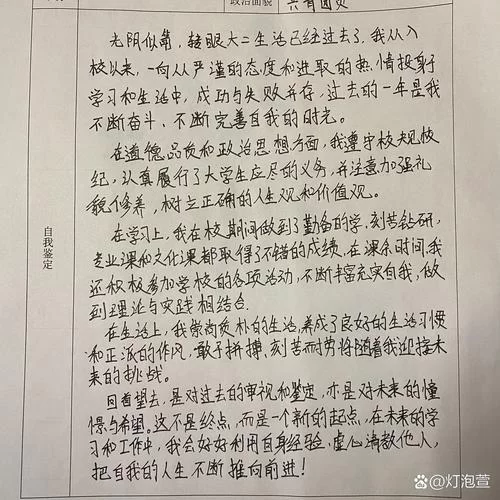 政治面貌
共青团员
自我鉴定
光阴似箭，转眼大二生活已经过去了，我从入
校以来，一向从严谨的态度和进取的热情投身于
学习和生活中，成功与失败并存，过去的一年是我
不断奋斗、不断完善自我的时光。
在道德品质和政治思想方面，我遵守校规校
纪，认真履行了大学生应尽的义务，并注意加强礼
貌修养，树立正确的人生观和价值观。
在学习上，我在校期间做到了勤备的学，刻苦钻研，
专业课和文化课都取得了不错的成绩，在课余时间，我
还积极参加学校的各项活动，不断丰富充实自我，做
到理论与实践相结合。
在生活上，我崇尚质朴的生活，养成了良好的生活习惯
和正派的作风，敢于拼搏，刻苦而耐劳将随着我迎接未
来的挑战。
回首望去，是对过去的审视和鉴定，亦是对未来的憧
憬与希望。这不是终点，而是一个新的起点，在未来的学
习和工作中，我会好好利用自身经验，虚心请教他人，
把自我的人生不断推向前进！
@灯泡萱